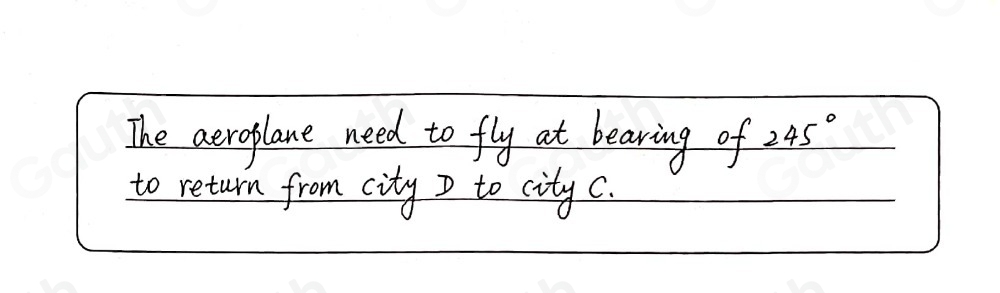 The aeroplane need to fly at bearing of 245°
to return from city D to city C.